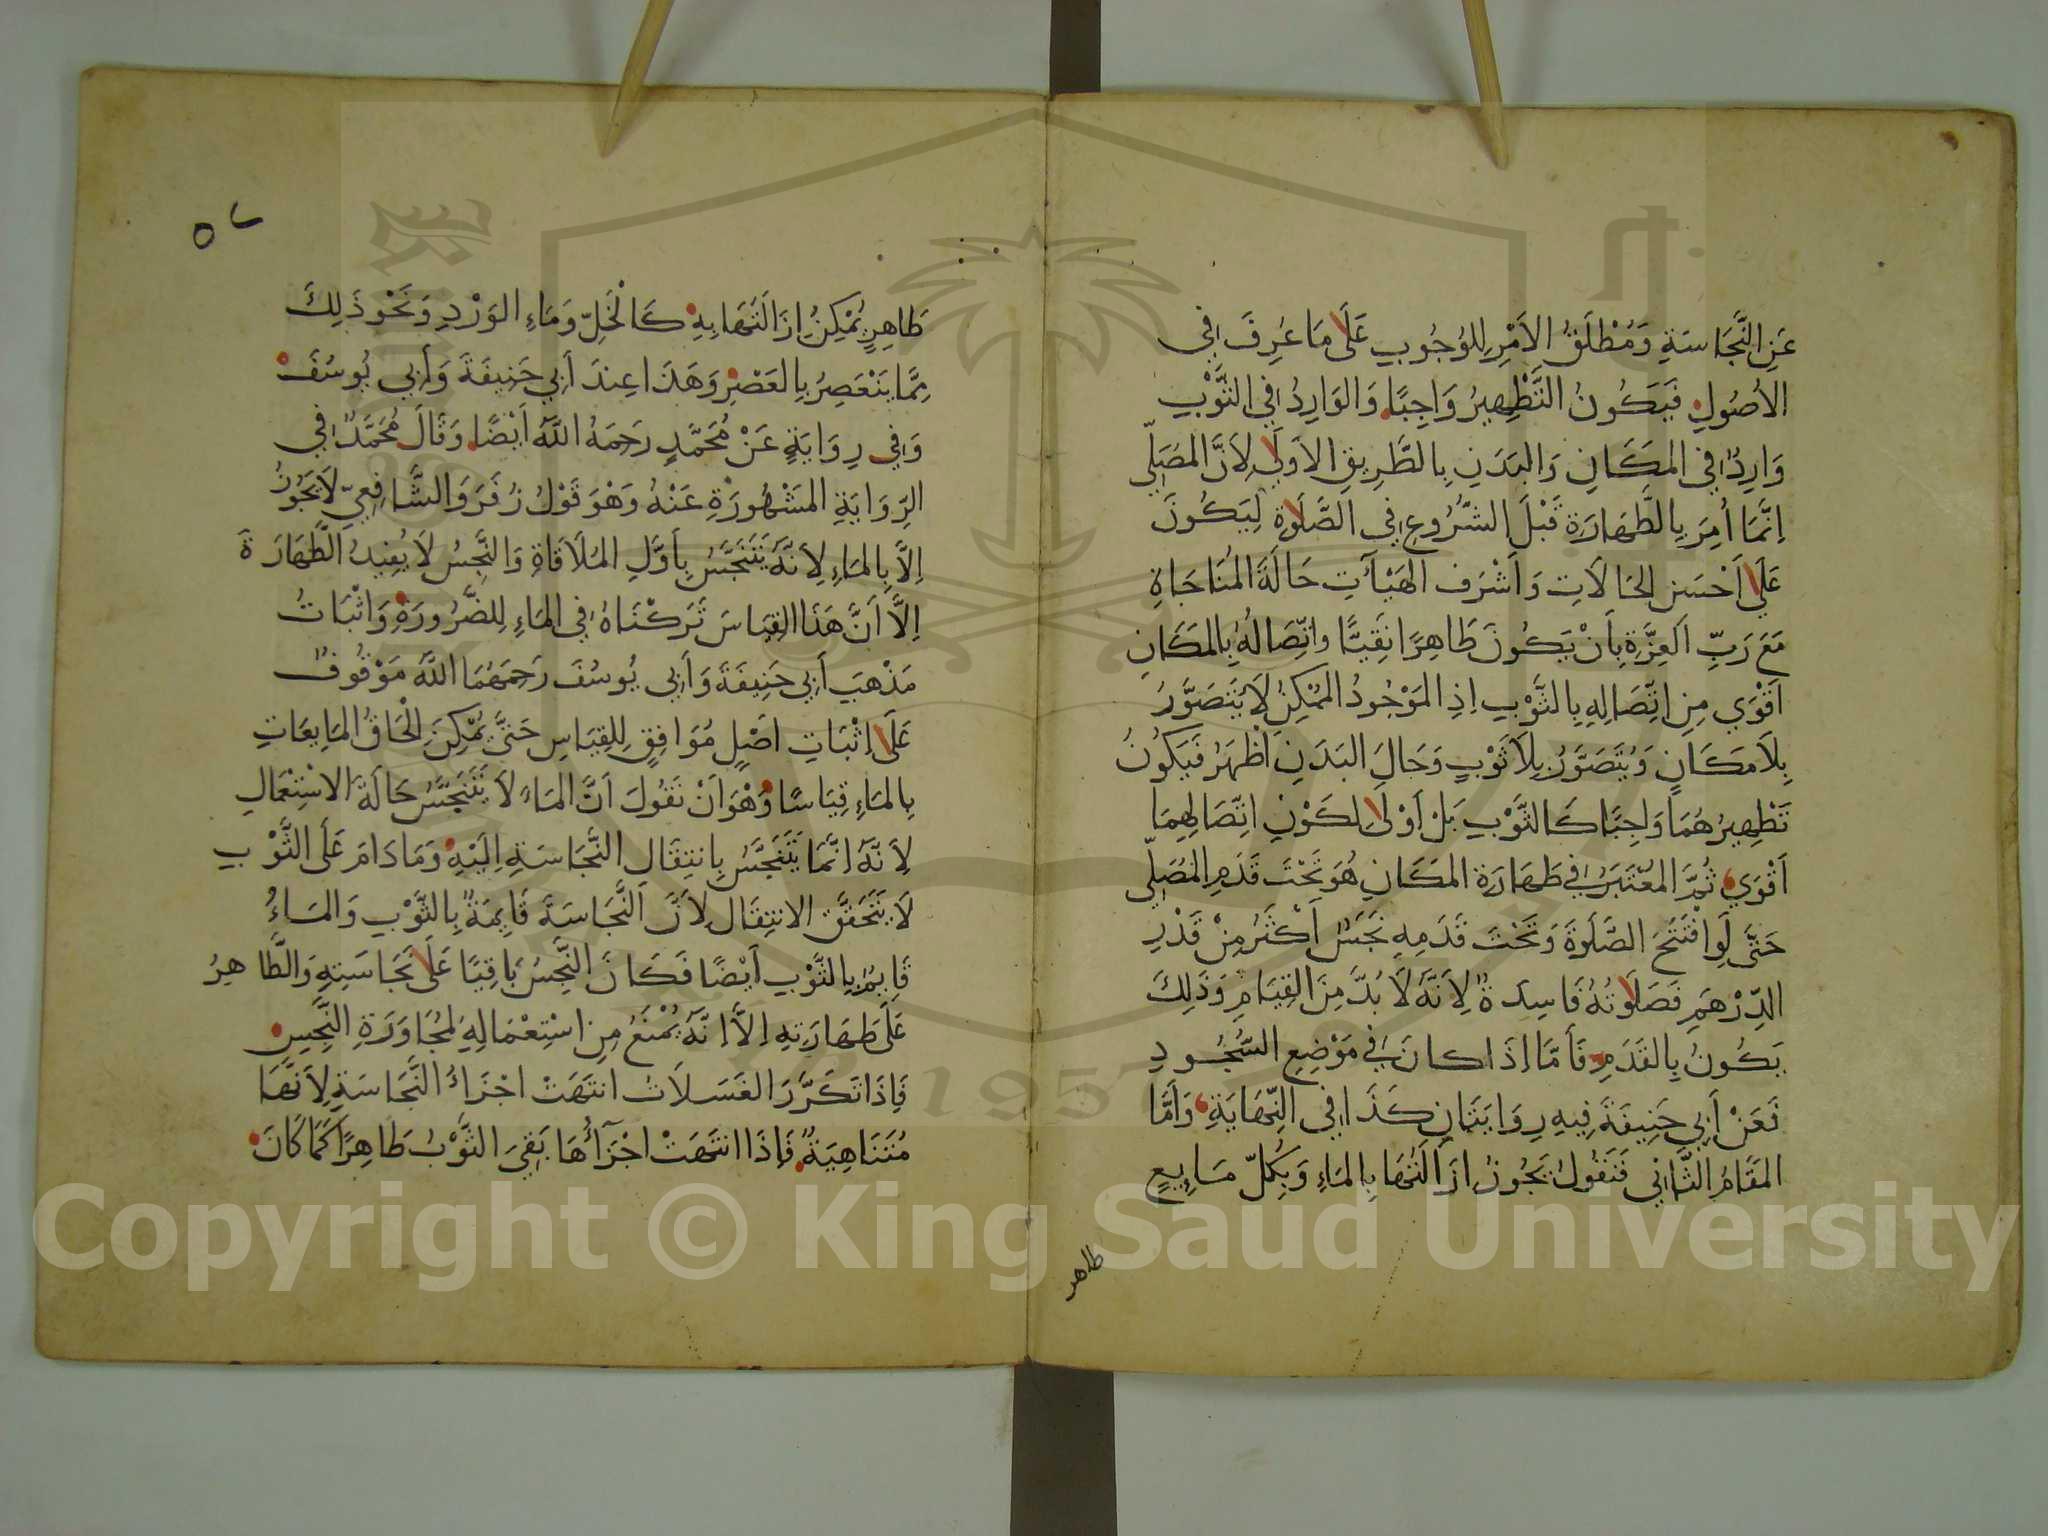 عَنِ النَّجَاسَةِ وَمُطْلَقُ الاَمْرِ لِلوُجُوبِ عَلَى مَا عُرِفَ فِي
الاُصُولِ فَيَكُونُ التَّطْهِيرُ وَاجِبًا وَالوَارِدُ فِي الثَّوْبِ
وَارِدٌ فِي المَكَانِ وَالبَدَنِ بِالطَّرِيقِ الاَولَى لِاَنَّ المُصَلِّي
اِنَّمَا اُمِرَ بِالطَّهَارَةِ قَبْلَ الشُّرُوعِ فِي الصَّلَاوةِ لِيَكُونَ
عَلَى اَحْسَنِ الحَالَاتِ وَاَشْرَفِ الهَيْآتِ حَالَةَ المُنَاجَاةِ
مَعَ رَبِّ العِزَّةِ بِاَنْ يَكُونَ طَاهِرًا نَقِيًّا وَاتِّصَالُهُ بِالمَكَانِ
اَقْوَي مِنِ اتِّصَالِهِ بِالثَّوْبِ اِذِ المَوْجُودُ المُمْكِنُ لَا يُتَصَوَّرُ
بِلَا مَكَانٍ وَيُتَصَوَّرُ بِلَا ثَوْبٍ وَحَالَ البَدَنِ اَظْهَرُ فَيَكُونُ
تَطْهِيرُهُمَا وَاجِبًا كَالثَّوْبِ بَلْ اَوْلَى لِكَوْنِ اتِّصَالِهِمَا
اَقْوَي ثُمَّ المُعْتَبَرُ فِي طَهَارَةِ المَكَانِ هُوَ تَحْتَ قَدَمِ المُصَلِّي
حَتَّى لَوِ افْتَتَحَ الصَّلَوةَ وَتَحْتَ قَدَمِهِ نَجَسٌ اَكْثَرُ مِنْ قَدْرِ
الدِّرْهَمِ فَصَلَاوتُهُ فَاسِدَةٌ لِاَنَّهُ لَا بُدَّ مِنَ القِيَامِ وَذَلِكَ
يَكُونُ بِالقَدَمِ فَاَمَّا اِذَا كَانَ فِي مَوْضِعِ السُّجُودِ
فَعَنْ اَبِي حَنِيفَةَ فِيهِ رِوَايَتَانِ كَذَا فِي النِّهَايَةِ وَاَمَّا
المَقَامُ الثَّانِي فَنَقُولُ يَجُوزُ اِزَالَتُهَا بِالمَاءِ وَبِكُلِّ مَايِعٍ
طاهر
٥٢
طَاهِرٍ يُمْكِنُ اِزَالَتُهَا بِهِ كَالْخَلِّ وَمَاءِ الوَرْدِ وَنَحْوِ ذَلِكَ
مِمَّا يَنْعَصِرُ بِالعَصْرِ وَهَذَا عِندَ اَبِي حَنِيفَةَ وَاَبِي يُوسُفَ
وَفِي رِوَايَةٍ عَنْ مُحَمَّدٍ رَحِمَهُ اللَّهُ اَيْضًا وَقَالَ مُحَمَّدٌ فِي
الرِّوَايَةِ المَشْهُورَةِ عَنْهُ وَهْوَ قَوْلُ زُفَرَ وَالشَّافِعِيّ لَا يَجُوزُ
اِلَّا بِالمَاءِ لِاَنَّهُ يَتَنَجَّسُ بِاَوَّلِ المُلَاقَاةِ وَالنَّجِسُ لَا يُفِيدُ الطَّهَارَةَ
اِلَّا اَنَّ هَذَا القِيَاسَ تَرَكْنَاهُ فِي المَاءِ لِلضَّرُورَةِ وَاِثْبَاتُ
مَذْهَبِ اَبِي حَنِيفَةَ وَاَبِي يُوسُفَ رَحِمَهُمَا اللَّهُ مَوْقُوفٌ
عَلَى اِثْبَاتِ اَصْلٍ مُوَافِقٍ لِلقِيَاسِ حَتَّى يُمْكِنَ اِلْحَاقُ المَايِعَاتِ
بِالمَاءِ قِيَاسًا وَهْوَ اَنْ نَقُولَ اَنَّ المَاءَ لَا يَتَنَجَّسُ حَالَةَ الاسْتِعْمَالِ
لِاَنَّهُ اِنَّمَا يَتَنَجَّسُ بِانتِقَالِ النَّجَاسَةِ اِلَيْهِ وَمَا دَامَ عَلَى الثَّوْبِ
لَا يَتَحَقَّقُ الانتِقَالُ لِاَنَّ النَّجَاسَةَ قَايِمَةٌ بِالثَّوْبِ وَالمَاءُ
قَايِمٌ بِالثَّوْبِ اَيْضًا فَكَانَ النَّجِسُ بَاقِيًا عَلَى نَجَاسَتِهِ وَالطَّاهِرُ
عَلَى طَهَارَتِهِ اِلَّا اَنَّهُ يُمْنَعُ مِنِ اسْتِعْمَالِهِ لِمُجَاوَرَةِ النَّجِسِ
فَاِذَا تَكَرَّرَ الغَسَلَاتُ انتَهَتْ اَجْزَاءُ النَّجَاسَةِ لِاَنَّهَا
مُتَنَاهِيَةٌ فَاِذَا انتَهَتْ اَجْزَآؤُهَا بَقِيَ الثَّوْبُ طَاهِرًا كَمَا كَانَ
1957
Copyright © King Saud University